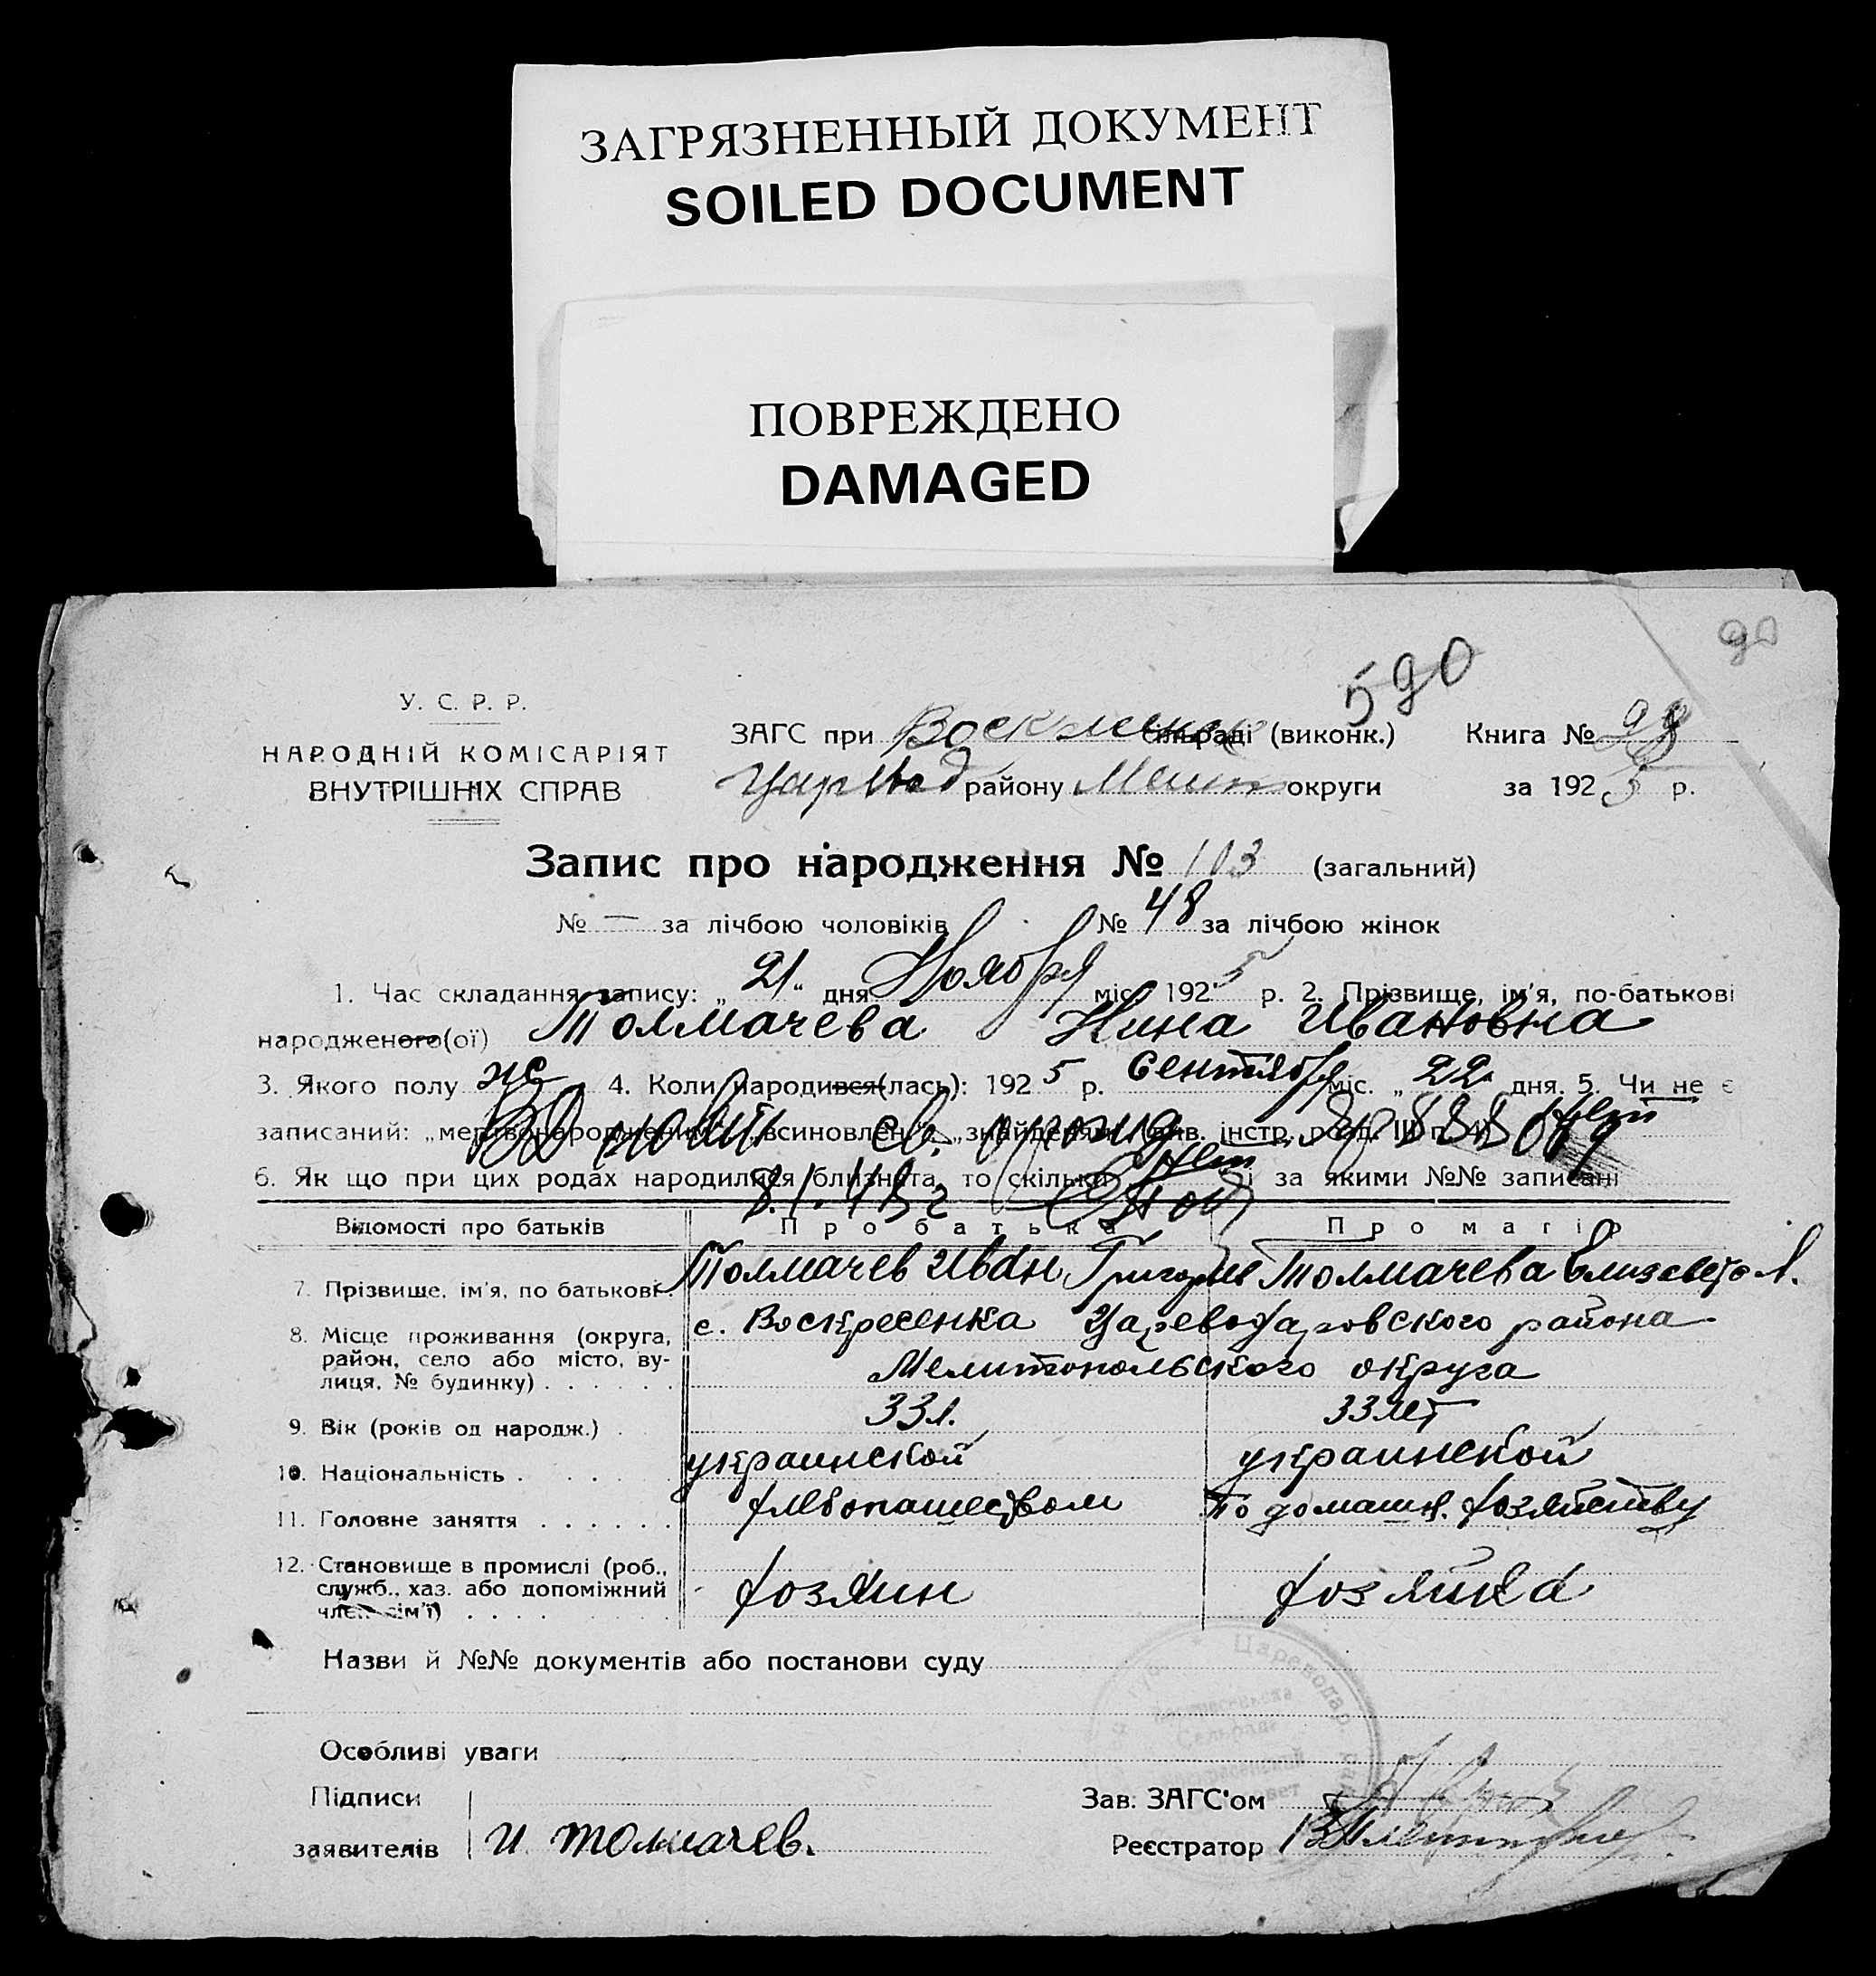 ЗАГРЯЗНЕННЫЙ ДОКУМЕНТ
SOILED DOCUMENT
ПОВРЕЖДЕНО
DAMAGED
90
590
У. С. Р. Р.
НАРОДНІЙ КОМІСАРІЯТ
ВНУТРІШНІХ СПРАВ
ЗАГС при сільраді (виконк.) Книга №
району Мелит округи за 1925 р.
Запис про народження № 103 (загальний)
№ — за лічбою чоловіків № 48 за лічбою жінок
1. Час складання запису: „21" дня Ноября міс. 1925 р. 2. Прізвище, ім'я, по-батькові
народженого(ої) Толмачева Нина Ивановна
3. Якого полу ж 4. Коли народився(лась): 1925 р. Сентября міс. „22" дня. 5. Чи не є
записаний: „мертвонародженим", „всиновлен", „знайденям" (див. інстр. розд. III п. 4) нет
6. Як що при цих родах народилися близнята, то скільки нет і за якими №№ записані
Відомості про батьків Про батька Про матір
7. Прізвище, ім'я, по батькові Толмачев Иван Григорьев Толмачева Елизавета Л.
8. Місце проживання (округа, район, село або місто, вулиця, № будинку) с. Воскресенка Цареводаровского района
Мелитопольского округа
9. Вік (років од народж.) 33 л. 33 лет
10. Національність украинской украинской
11. Головне заняття хлебопашеством По домашн. хозяйству
12. Становище в промислі (роб., служб., хаз. або допоміжний член сім'ї) хозяин хозяйка
Назви й №№ документів або постанови суду
Особливі уваги
Підписи Зав. ЗАГС'ом
заявителів И. Толмачев. Реєстратор